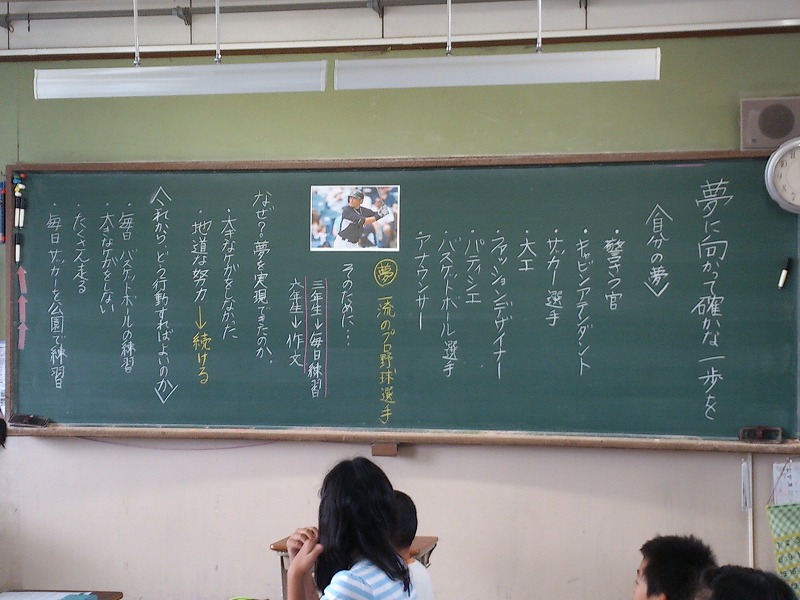 夢に向かって確かな一歩を
〈自分の夢〉
・警さつ官
・キャビンアテンダント
・サッカー選手
・大工
・ファッションデザイナー
・パティシエ
・バスケットボール選手
・アナウンサー
夢 一流のプロ野球選手
そのために…
三年生→毎日練習
六年生→作文
なぜ?夢を実現できたのか。
・大きなケガをしなかった
・地道な努力→続ける
〈これから、どう行動すればよいのか〉
・毎日バスケットボールの練習
・大きなケガをしない
・たくさん走る
・毎日サッカーを公園で練習